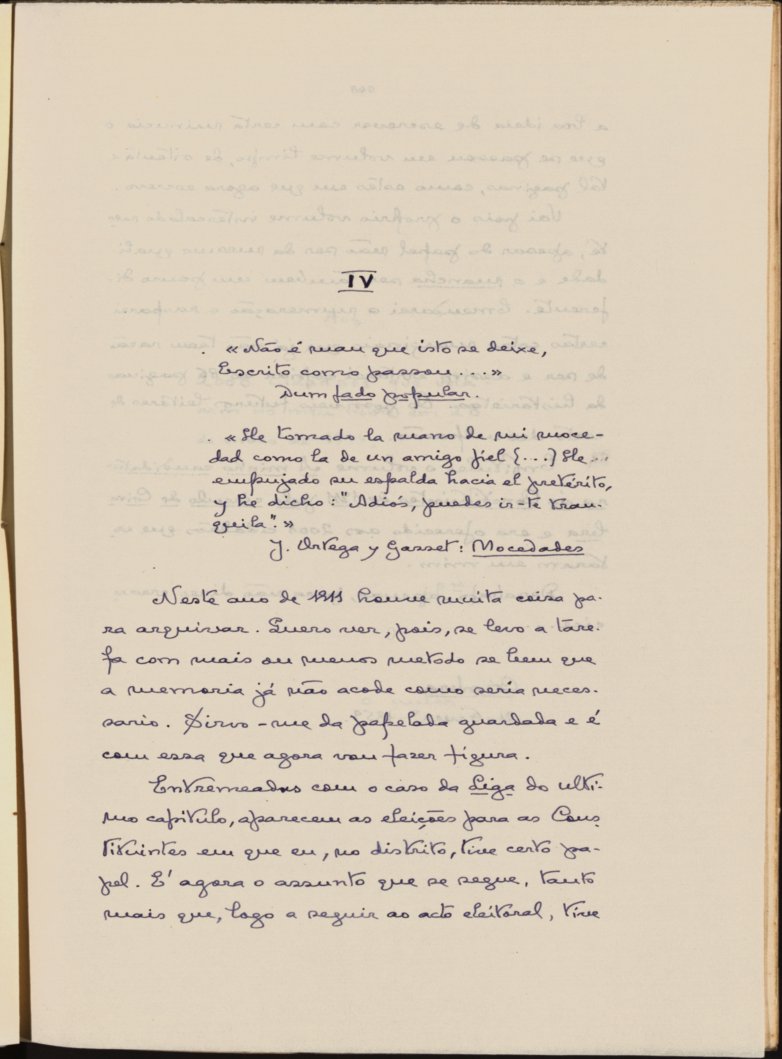 IV
. «Não é mau que isto se deixe,
Escrito como passou...»
Dum fado popular.
. «He tomado la mano de mi moce-
dad como la de un amigo fiel {...} He
empujado su espalda hacia el pretérito,
y he dicho: "Adiós, puedes ir-te tran-
quila".»
J. Ortega y Gasset: Mocedades
Neste ano de 1911 houve muita coisa pa-
ra arquivar. Quero ver, pois, se levo a tare-
fa com mais ou menos metodo se bem que
a memoria já não acode como seria neces-
sario. Sirvo-me da papelada guardada e é
com essa que agora vou fazer figura.
Entremeadas com o caso da Liga do ulti-
mo capitulo, aparecem as eleições para as Cons
tituintes em que eu, no distrito, tive certo pa-
pel. E' agora o assunto que se segue, tanto
mais que, logo a seguir ao acto eleitoral, tive